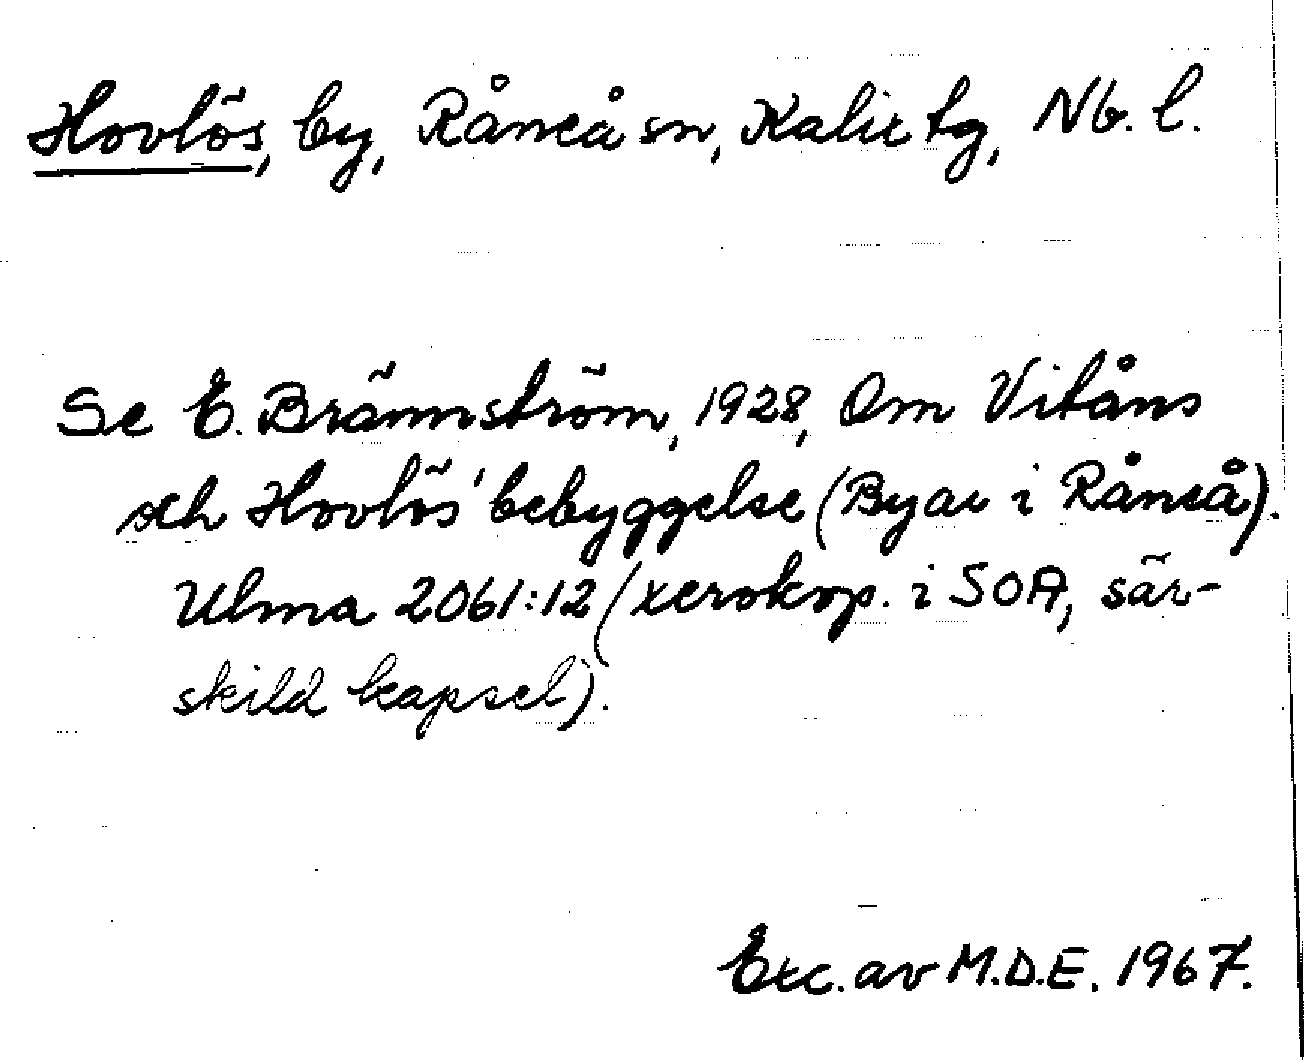 Hovlös, by, Råneå sn, Kalix tg, Nb. l.
Se E. Brännström, 1928, Om Vitåns
och Hovlös' bebyggelse (Byar i Råneå).
Ulma 2061:12 (xerokop. i SOA, sär-
skild kapsel).
Exc. av M.D.E. 1967.